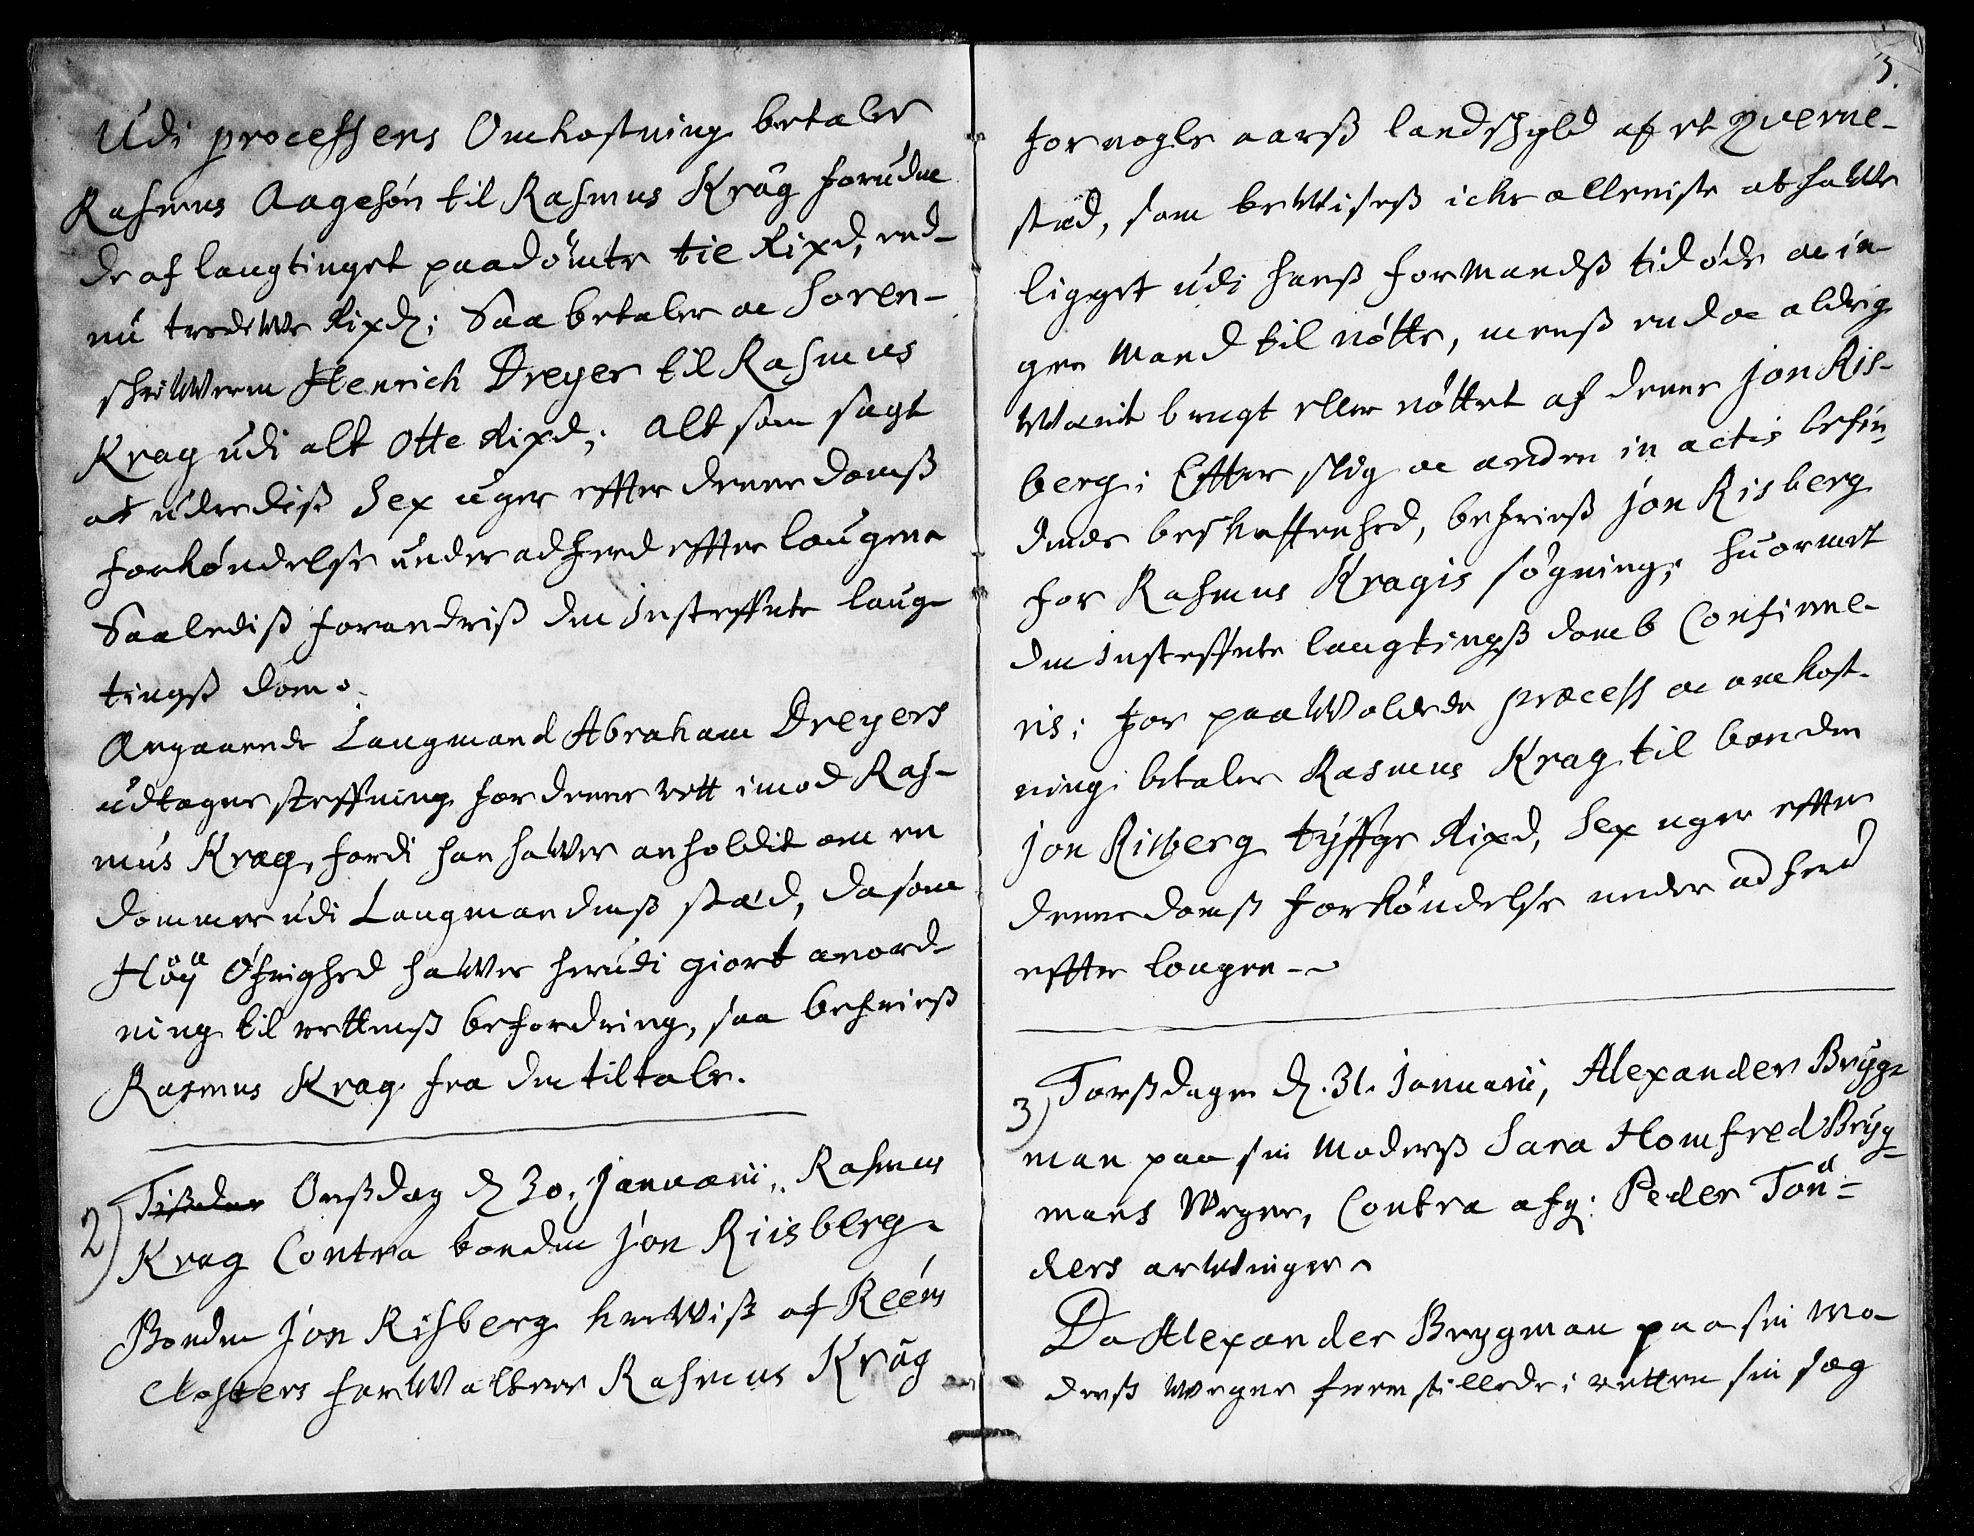 Udi processens Omkostning betaler
Rasmus Aagesøn til Rasmus Krag foruden
de af laugtinget paadømte tie Rixd, end-
nu tredewe Rixd; Saa betaler oc Soren-
skriweren Henrich Dreyer til Rasmus
Krag udi alt Otte Rixd; alt som sagt
at udrediß Sex uger effter denne domß
forkøndelse under adferd effter laugen
Saalediß forandriß den Insteffnte laug-
tingß dom.
Angaaende Laugmand Abraham Dreyers
udtagne steffning for denne rett imod Ras-
mus Krag, fordi han hawer anholdit om en
dommer udi Laugmandenß stæd, da som
Höy Øfrighed hawer herudi giort anord-
ning til rettenß befordring, saa befrieß
Rasmus Krag fra den tiltale.
2) Tißdag Onßdag d 30. Januarii, Rasmus
Krag Contra bonden Jon Riisberg
Bonden Jon Risberg krewiß af Reens
Closters forwalter Rasmus Krag
3.
for nogle aarß landskyld af et Qverne-
stæd, som bewiseß icke alleniste at hawe
ligget udi hanß formandß tid øde oc in-
gen mand til nøtte, menß end oc aldrig
wærit brugt eller nøttet af denne Jon Ris-
berg; Effter slig oc anden in actis befin-
dende beskaffenhed, befrieß Jon Risberg
for Rasmus Kragis søgning; huormet
den Insteffnte laugtingß domb Confirme-
ris; for paawoldede process oc omkost-
ning betaler Rasmus Krag til bonden
Jon Risberg tyffge Rixd, Sex uger effter
denne domß forkøndelse under adferd
effter lougen
3) Torßdagen d. 31. Januarii, Alexander Bryg-
man paa sin Moderß Sara Homfred Bryg-
mans Wegne, Contra afg: Peder Tön-
ders arwinger
Da Alexander Brygman paa sin Mo-
derß wegne fremstillede i retten sin sag